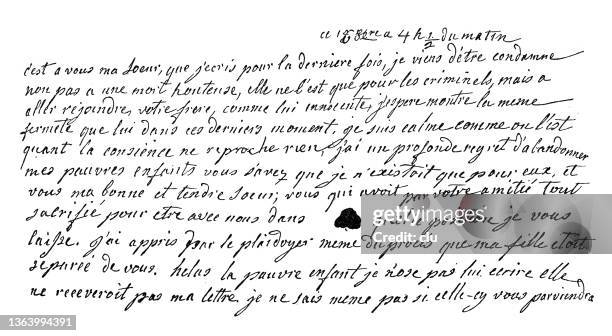 ce 16 8bre a 4 h 1/2 du matin
c'est a vous ma Soeur, que j'ecris pour la derniere fois, je viens d'être condamne
non pas a une mort honteuse, elle ne l'est que pour les criminels, mais a
aller rejoindre votre frere, comme lui innocente, j'espere montre la meme
fermeté que lui dans ces derniers moment, je suis calme comme on l'est
quant la consience ne reproche rien, j'ai un profonde regret d'abandonner
mes pauvres enfants vous savez que je n'existoit que pour eux, et
vous ma bonne et tendre Soeur, vous qui avoit par votre amitié tout
sacrifié pour etre avec nous dans quelle position je vous
laisse. j'ai appris par le plaidoyer meme du procès que ma fille etoit
separée de vous. helas la pauvre enfant je n'ose pas lui ecrire elle
ne receveroit pas ma lettre, je ne sais meme pas si celle-cy vous parviendra
gettyimages
Credit: duncan1890
1363994391